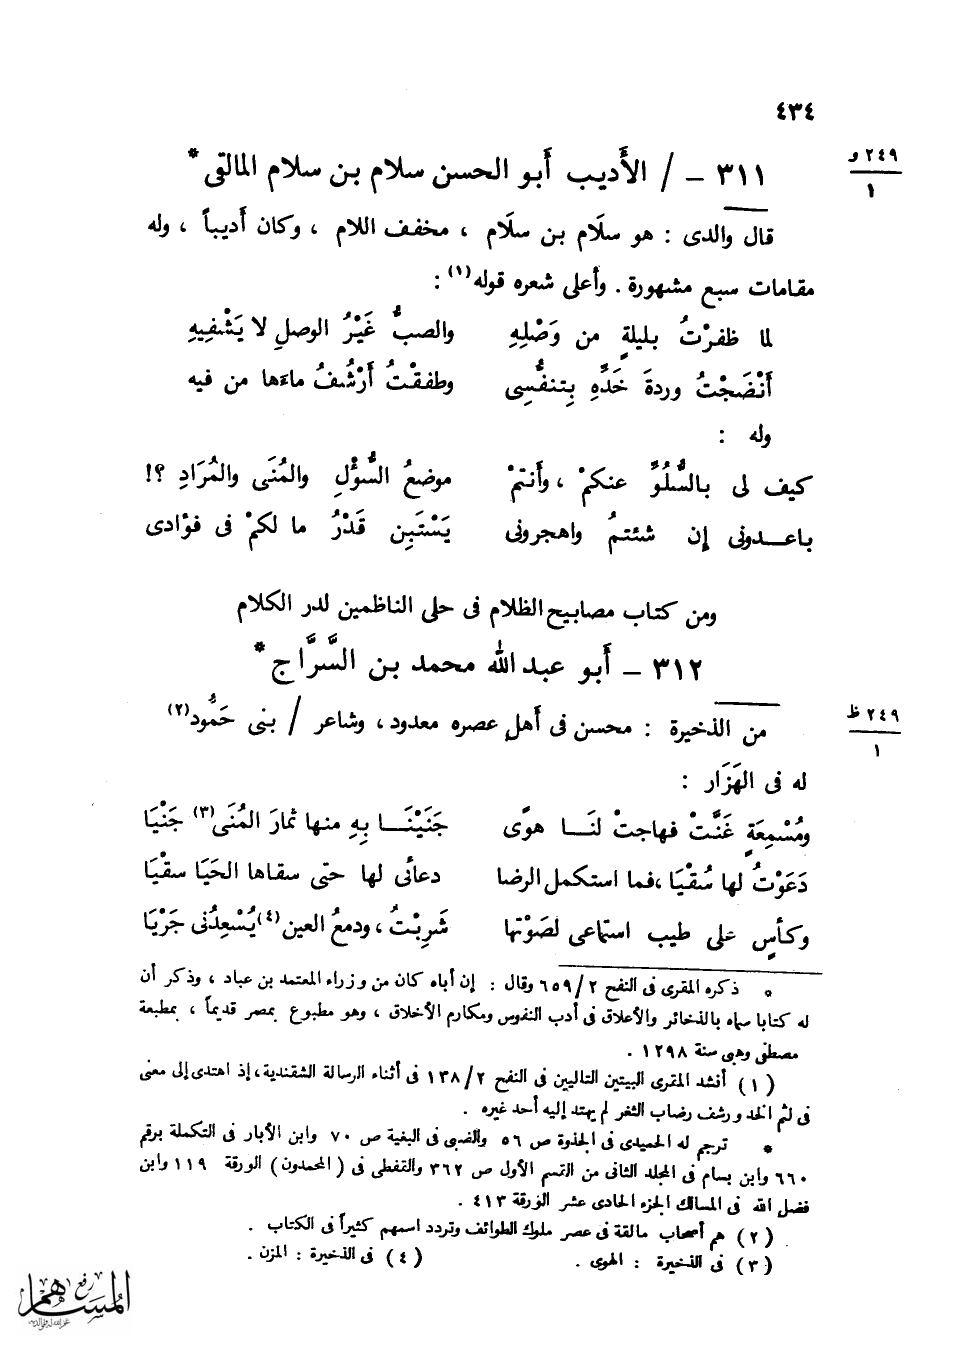 ٤٣٤
٢٤٩ و
١
٣١١ – / الأديب أبو الحسن سلام بن سلام المالقى *
قال والدى : هو سلَام بن سلَام ، مخفف اللام ، وكان أديباً ، وله
مقامات سبع مشهورة . وأعلى شعره قوله(١) :
لما ظفرْتُ بليلةٍ من وَصْلِهِ    والصبُّ غَيْرُ الوصلِ لا يَشْفِيهِ
أَنْضَجْتُ وردةَ خَدِّهِ بِتنفُّسِى    وطفقْتُ أَرْشُفُ ماءَها من فيه
وله :
كيف لى بالسُّلُوِّ عنكمْ ، وأَنتمْ    موضعُ السُّؤْلِ والمُنَى والمُرَادِ ؟!
باعـدونى إن شئتمُ واهجرونى    يَسْتَبِن قَدْرُ ما لكمْ فى فؤادى
ومن كتاب مصابيح الظلام فى حلى الناظمين لدر الكلام
٣١٢ – أبو عبد الله محمد بن السَّرَّاج *
٢٤٩ ظ
١
من الذخيرة : محسن فى أهل عصره معدود ، وشاعر / بنى حَمُّود(٢)
له فى الهَزَار :
ومُسْمِعَةٍ غَنَّتْ فهاجتْ لنَـا هوًى    جَنَيْنَـا بِهِ منها ثمارَ المُنَى(٣) جَنْيَا
دَعَوْتُ لها سُقْيَا ، فما استكمل الرضا    دعائى لها حتى سقاها الحَيَا سقْيَا
وكأسٍ على طيب استماعى لصَوْتها    شَرِبْتُ ، ودمعُ العين(٤) يُسْعِدُنى جَرْيَا
* ذكره المقرى فى النفح ٢/ ٦٥٩ وقال : إن أباه كان من وزراء المعتمد بن عباد ، وذكر أن
له كتابا سماه بالذخائر والأعلاق فى أدب النفوس ومكارم الأخلاق ، وهو مطبوع بمصر قديماً ، بمطبعة
مصطفى وهبى سنة ١٢٩٨ .
(١) أنشد المقرى البيتين التاليين فى النفح ٢/ ١٣٨ فى أثناء الرسالة الشقندية ، إذ اهتدى إلى معنى
فى لثم الخد ورشف رضاب الثغر لم يهتد إليه أحد غيره .
* ترجم له الحميدى فى الجذوة ص ٥٦ والضبى فى البغية ص ٧٠ وابن الأبار فى التكملة برقم
٦٦٠ وابن بسام فى المجلد الثانى من القسم الأول ص ٣٦٢ والقفطى فى (المحمدون) الورقة ١١٩ وابن
فضل الله فى المسالك الجزء الحادى عشر الورقة ٤١٣ .
(٢) هم أصحاب مالقة فى عصر ملوك الطوائف وتردد اسمهم كثيراً فى الكتاب .
(٣) فى الذخيرة : الهوى .    (٤) فى الذخيرة : المزن .
رفع
المساهم